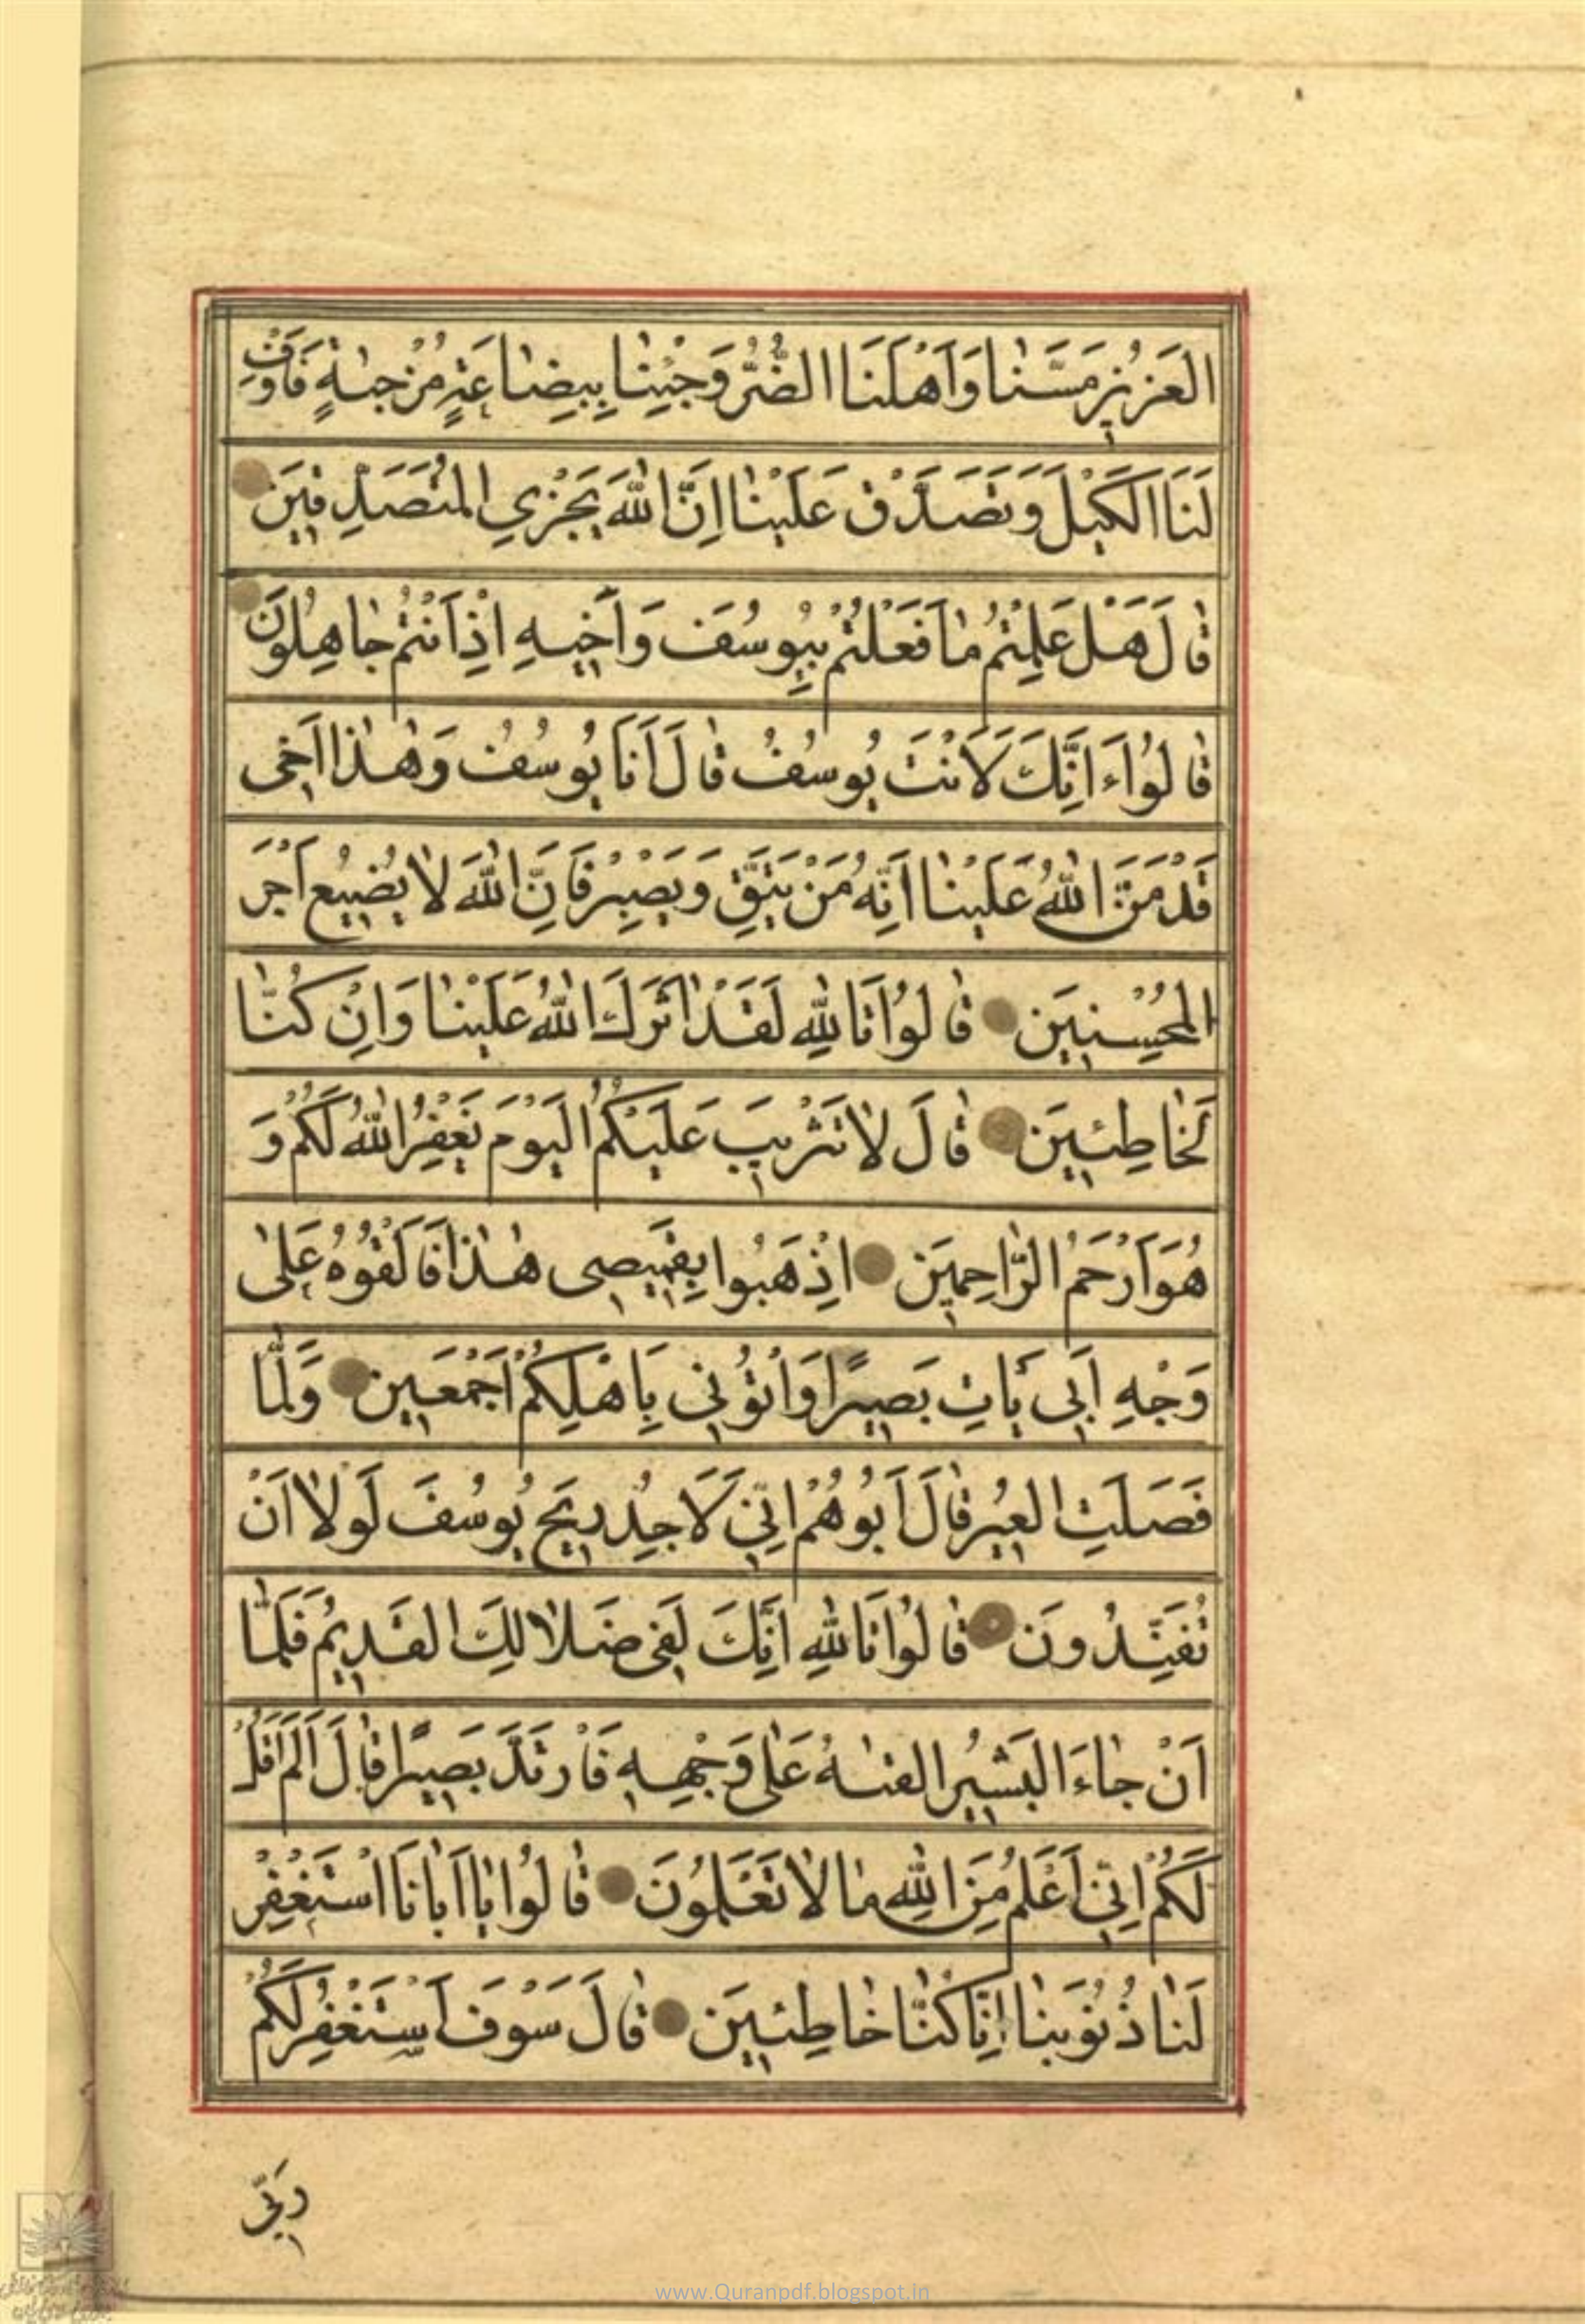 العَزِيزُ مَسَّنٰا وَاَهْلَنَا الضُّرُّ وَجِئْنٰا بِبِضٰاعَةٍ مُزْجٰىةٍ فَاَوْفِ
لَنَا الْكَيْلَ وَتَصَدَّقْ عَلَيْنٰا اِنَّ اللّٰهَ يَجْزِي الْمُتَصَدِّقِينَ
قٰالَ هَلْ عَلِمْتُمْ مٰا فَعَلْتُمْ بِيُوسُفَ وَاَخِيهِ اِذْ اَنْتُمْ جٰاهِلُونَ
قٰالُوا ءَاِنَّكَ لَاَنْتَ يُوسُفُ قٰالَ اَنَا يُوسُفُ وَهٰذٰا اَخِى
قَدْ مَنَّ اللّٰهُ عَلَيْنٰا اِنَّهُ مَنْ يَتَّقِ وَيَصْبِرْ فَاِنَّ اللّٰهَ لٰا يُضِيعُ اَجْرَ
الْمُحْسِنِينَ قٰالُوا تَاللّٰهِ لَقَدْ اٰثَرَكَ اللّٰهُ عَلَيْنٰا وَاِنْ كُنّٰا
لَخٰاطِئِينَ قٰالَ لٰا تَثْرِيبَ عَلَيْكُمُ الْيَوْمَ يَغْفِرُ اللّٰهُ لَكُمْ وَ
هُوَ اَرْحَمُ الرّٰاحِمِينَ اِذْهَبُوا بِقَمِيصِى هٰذٰا فَاَلْقُوهُ عَلىٰ
وَجْهِ اَبِى يَأْتِ بَصِيرًا وَأْتُونِى بِاَهْلِكُمْ اَجْمَعِينَ وَلَمّٰا
فَصَلَتِ الْعِيرُ قٰالَ اَبُوهُمْ اِنِّى لَاَجِدُ رِيحَ يُوسُفَ لَوْلٰا اَنْ
تُفَنِّدُونَ قٰالُوا تَاللّٰهِ اِنَّكَ لَفِى ضَلٰالِكَ الْقَدِيمِ فَلَمّٰا
اَنْ جٰاءَ الْبَشِيرُ القىٰهُ عَلىٰ وَجْهِهِ فَارْتَدَّ بَصِيرًا قٰالَ اَلَمْ اَقُلْ
لَكُمْ اِنِّى اَعْلَمُ مِنَ اللّٰهِ مٰا لٰا تَعْلَمُونَ قٰالُوا يٰا اَبٰانَا اسْتَغْفِرْ
لَنٰا ذُنُوبَنٰا اِنّٰا كُنّٰا خٰاطِئِينَ قٰالَ سَوْفَ اَسْتَغْفِرُ لَكُمْ
رَبِّى
www.Quranpdf.blogspot.in